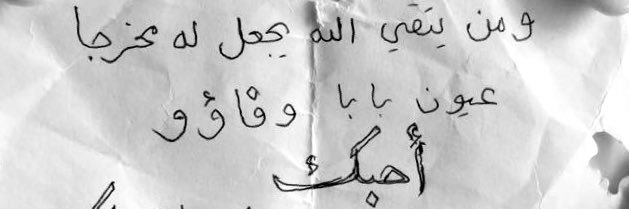 ومن يتقي الله يجعل له مخرجا
عيون بابا وفاؤو
أحبك